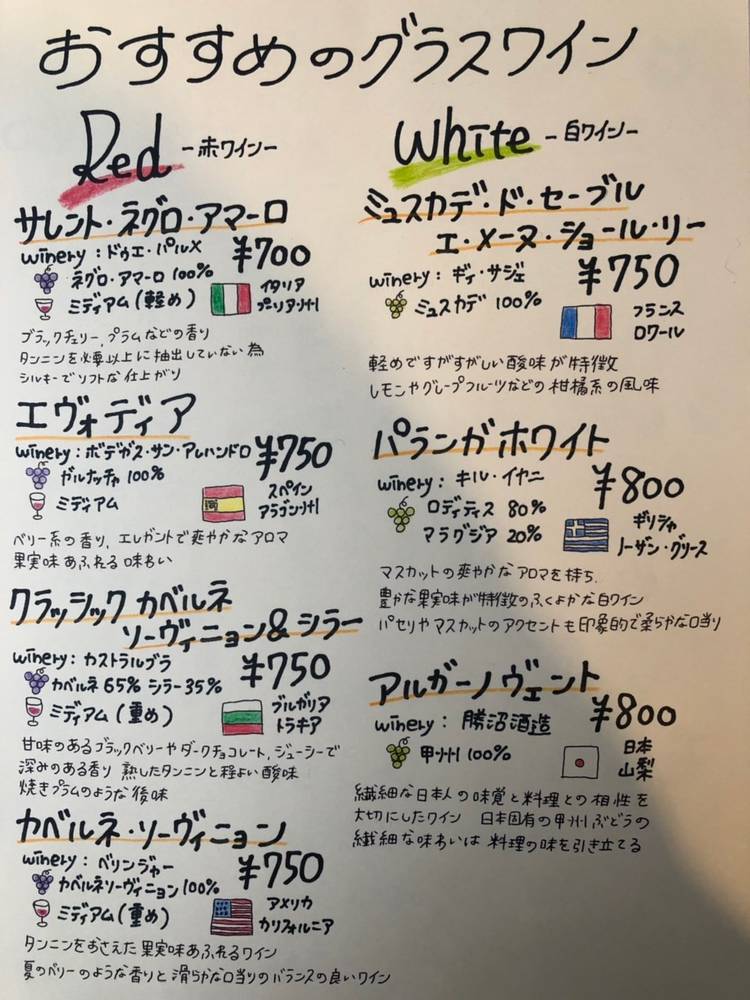 おすすめのグラスワイン
Red -赤ワイン-
サレント・ネグロ・アマーロ
winery:ドゥエ・パルメ ¥700
ネグロ・アマーロ 100%
ミディアム(軽め)
イタリア
プーリア州
ブラックチェリー、プラムなどの香り
タンニンを必要以上に抽出していない為
シルキーでソフトな仕上がり
エヴォディア
winery:ボデガス・サン・アレハンドロ ¥750
ガルナッチャ 100%
ミディアム
スペイン
アラゴン州
ベリー系の香り、エレガントで爽やかなアロマ
果実味あふれる味わい
クラッシックカベルネ
ソーヴィニョン&シラー
winery:カストラルブラ ¥750
カベルネ 65% シラー 35%
ミディアム(重め)
ブルガリア
トラキア
甘味のあるブラックベリーやダークチョコレート、ジューシーで
深みのある香り 熟したタンニンと程よい酸味
焼きプラムのような後味
カベルネ・ソーヴィニョン
winery:ベリンジャー ¥750
カベルネソーヴィニョン 100%
ミディアム(重め)
アメリカ
カリフォルニア
タンニンをおさえた果実味あふれるワイン
夏のベリーのような香りと滑らかな口当りのバランスの良いワイン
White -白ワイン-
ミュスカデ・ド・セーブル
エ・メーヌ・ショール・リー
winery:ギィ・サジェ ¥750
ミュスカデ 100%
フランス
ロワール
軽めですがすがしい酸味が特徴
レモンやグレープフルーツなどの柑橘系の風味
パランガホワイト
winery:キル・イヤニ ¥800
ロディティス 80%
マラグジア 20%
ギリシャ
ノーザン・グリース
マスカットの爽やかなアロマを持ち、
豊かな果実味が特徴のふくよかな白ワイン
パセリやマスカットのアクセントも印象的で柔らかな口当り
アルガーノヴェント
winery:勝沼酒造 ¥800
甲州 100%
日本
山梨
繊細な日本人の味覚と料理との相性を
大切にしたワイン 日本固有の甲州ぶどうの
繊細な味わいは料理の味を引き立てる